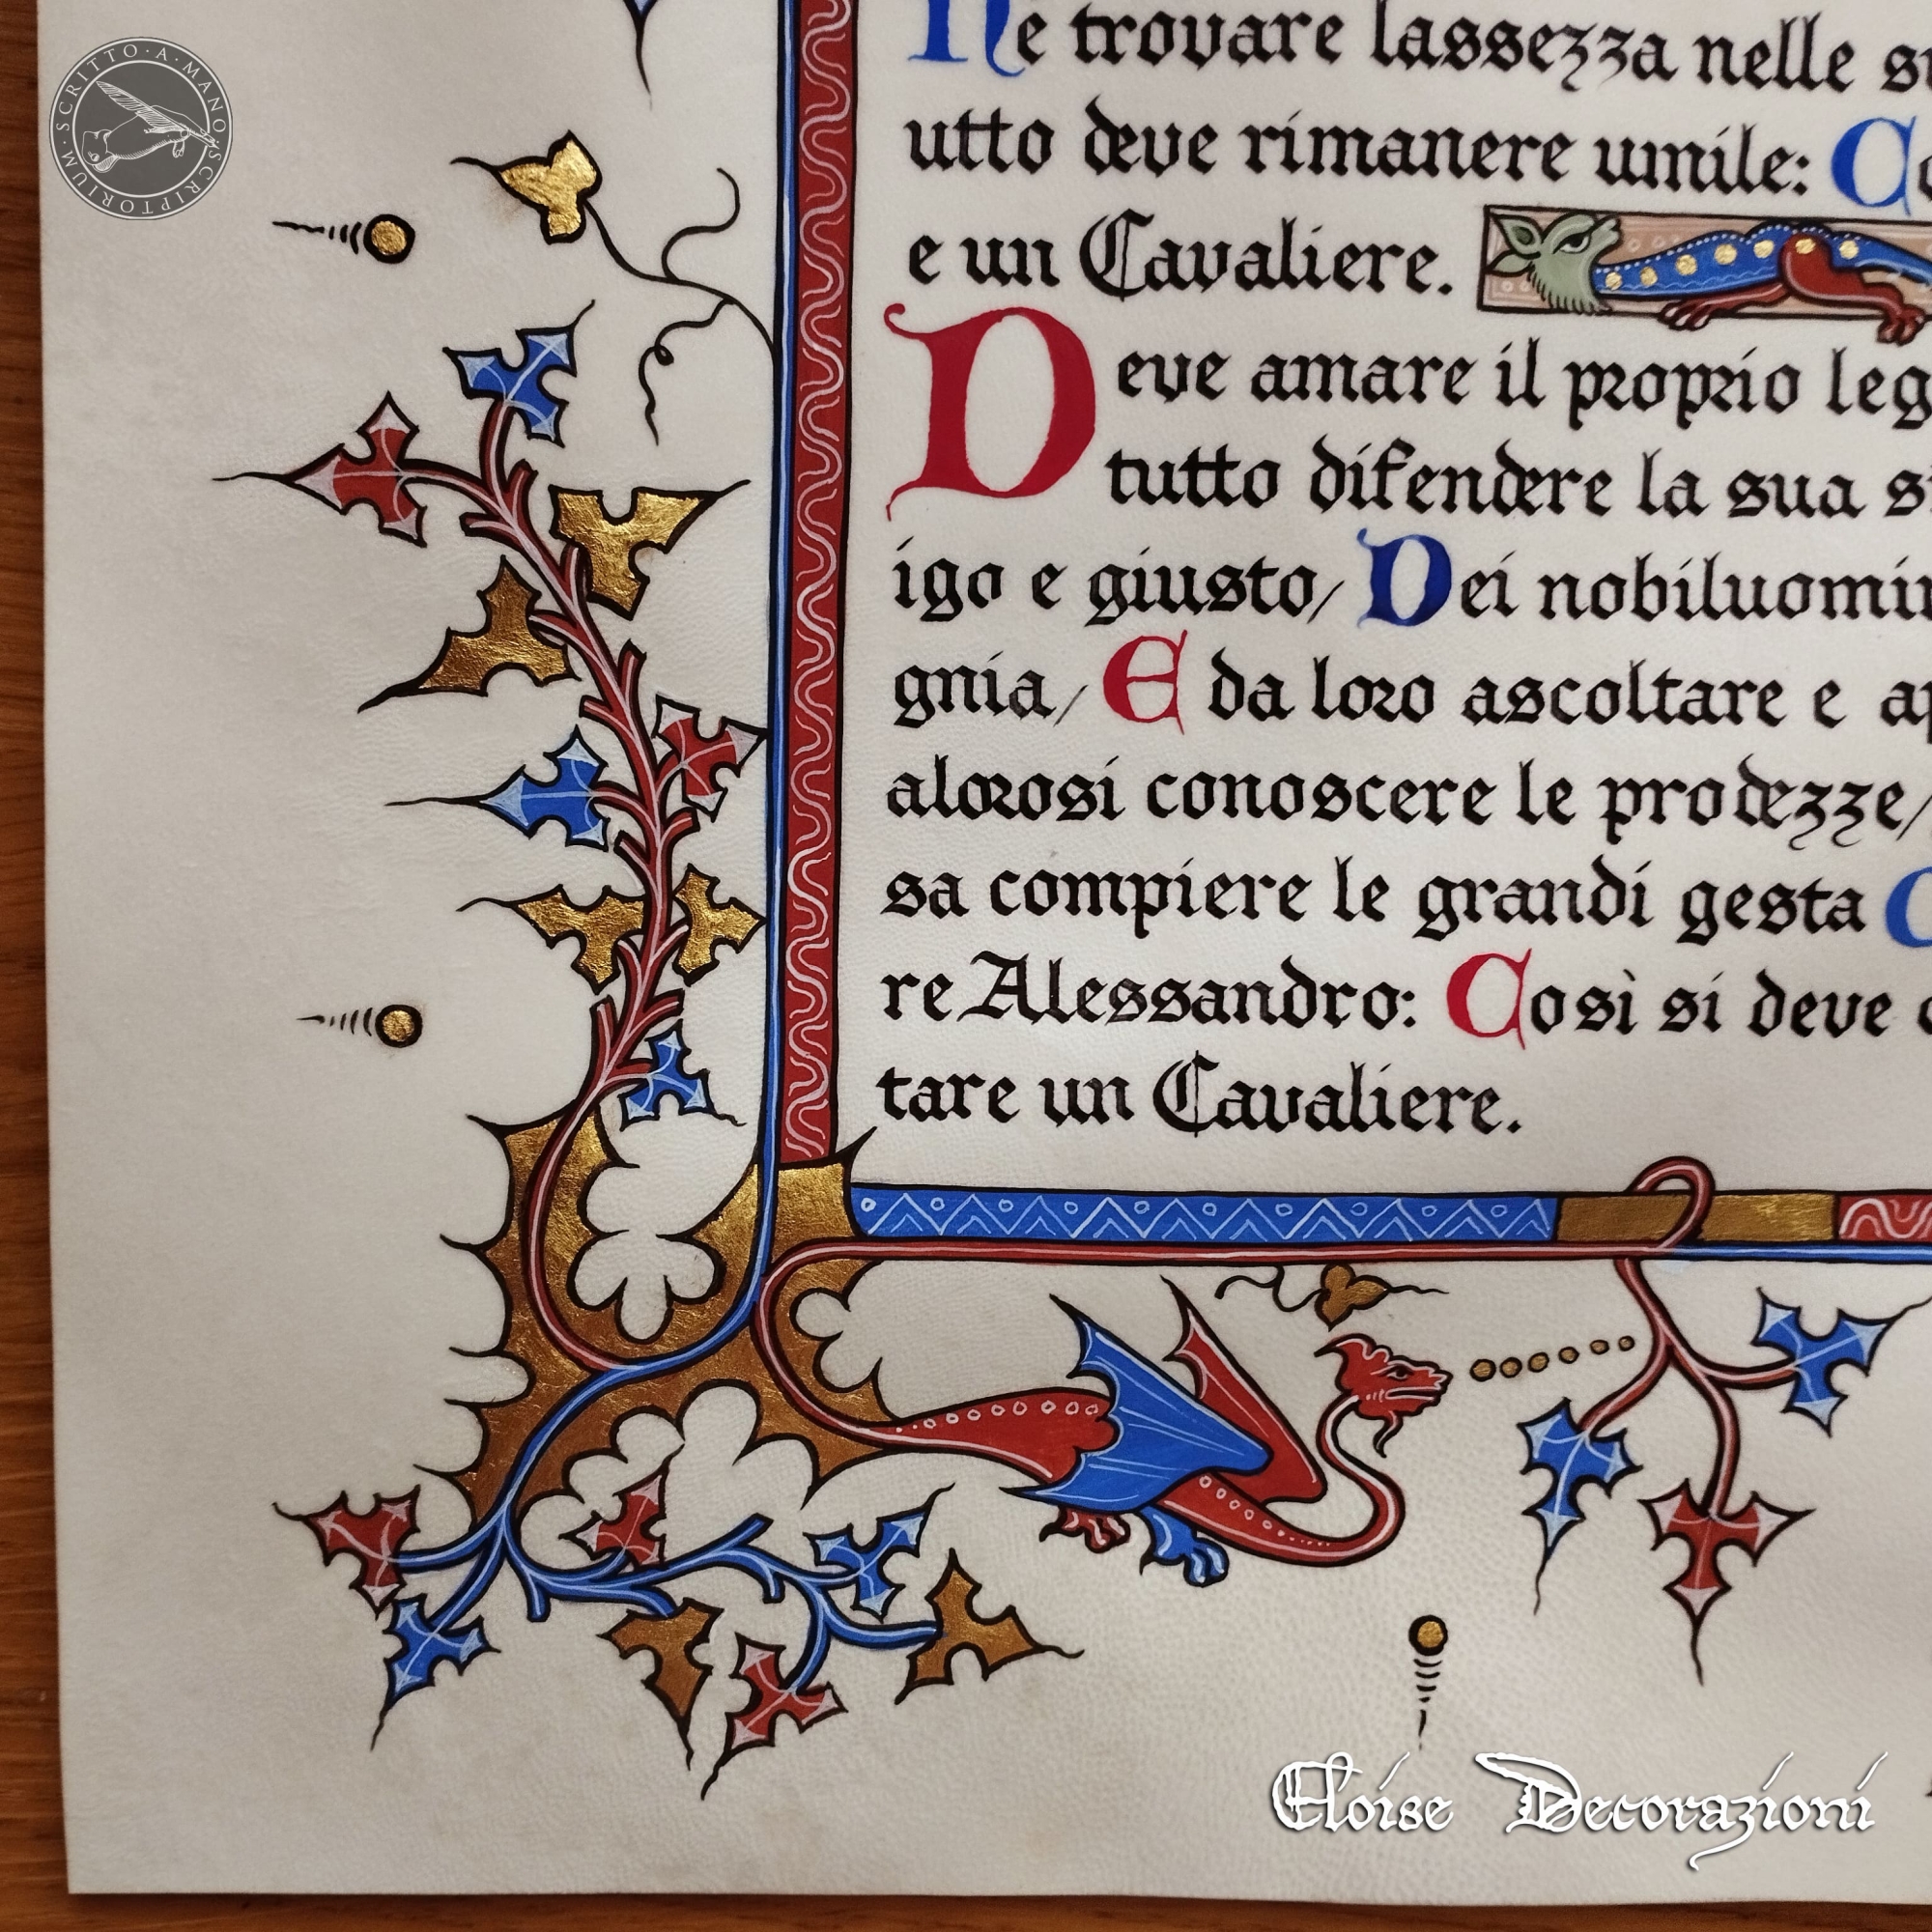 SCRITTO·A·MANO·SCRIPTORIUM·M·
Ne trovare lassezza nelle
utto deve rimanere umile: Co
e un Cavaliere.
Deve amare il proprio leg
tutto difendere la sua
igo e giusto/ Dei nobiluomi
gnia/ E da loro ascoltare e ap
alorosi conoscere le prodezze/
sa compiere le grandi gesta C
re Alessandro: Così si deve
tare un Cavaliere.
Eloise Decorazioni